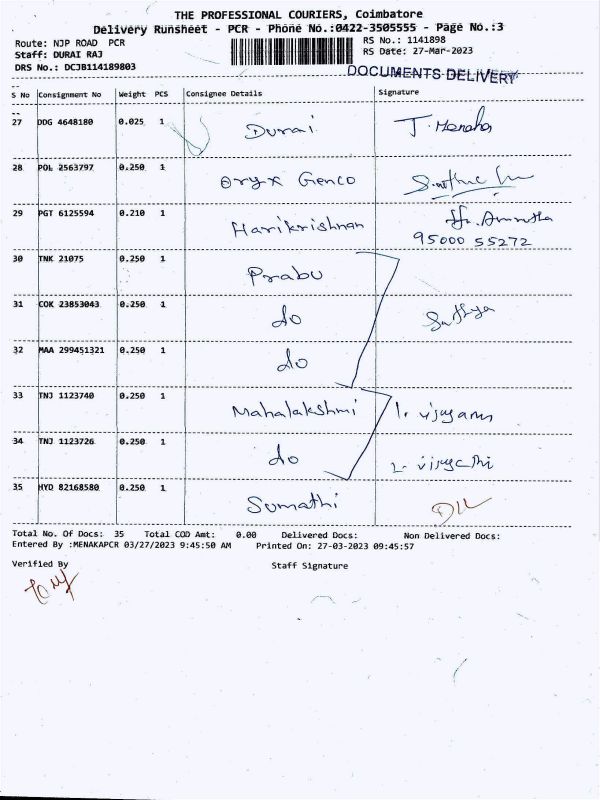 THE PROFESSIONAL COURIERS, Coimbatore
Delivery Runsheet - PCR - Phone No.:0422-3505555 - Page No.:3
Route: NJP ROAD PCR RS No.: 1141898
Staff: DURAI RAJ RS Date: 27-Mar-2023
DRS No.: DCJB114189803
DOCUMENTS DELIVERY
S No Consignment No Weight PCS Consignee Details Signature
27 DDG 4648180 0.025 1 Durai
28 POL 2563797 0.250 1 Oryx Genco
29 PGT 6125594 0.210 1 Harikrishnan
95000 55272
30 TNK 21075 0.250 1 Prabu
31 COK 23853043 0.250 1 do Sathya
32 MAA 299451321 0.250 1 do
33 TNJ 1123740 0.250 1 Mahalakshmi
34 TNJ 1123726 0.250 1 do
35 HYD 82168580 0.250 1 Sumathi
Total No. Of Docs: 35 Total COD Amt: 0.00 Delivered Docs: Non Delivered Docs:
Entered By :MENAKAPCR 03/27/2023 9:45:50 AM Printed On: 27-03-2023 09:45:57
Verified By Staff Signature